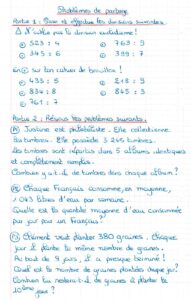 Problèmes de partage
Partie 1 : Pose et effectue les divisions suivantes.
⚠ N'oublie pas la division euclidienne !
523 : 4
763 : 9
345 : 6
399 : 7
sur ton cahier de brouillon !
433 : 5
218 : 9
834 : 8
845 : 3
761 : 7
Partie 2 : Résous les problèmes suivants.
Justine est philatéliste. Elle collectionne
des timbres. Elle possède 3 265 timbres.
Les timbres sont répartis dans 5 albums, identiques
et complètement remplis.
Combien y a-t-il de timbres dans chaque album ?
Chaque Français consomme, en moyenne,
1 043 litres d'eau par semaine.
Quelle est la quantité moyenne d'eau consommée
par jour par un Français ?
Clément veut planter 380 graines. Chaque
jour il plante le même nombre de graines.
Au bout de 9 jours, il a presque terminé !
Quel est le nombre de graines plantées chaque jour ?
Combien lui restera-t-il de graines à planter le
10ème jour ?